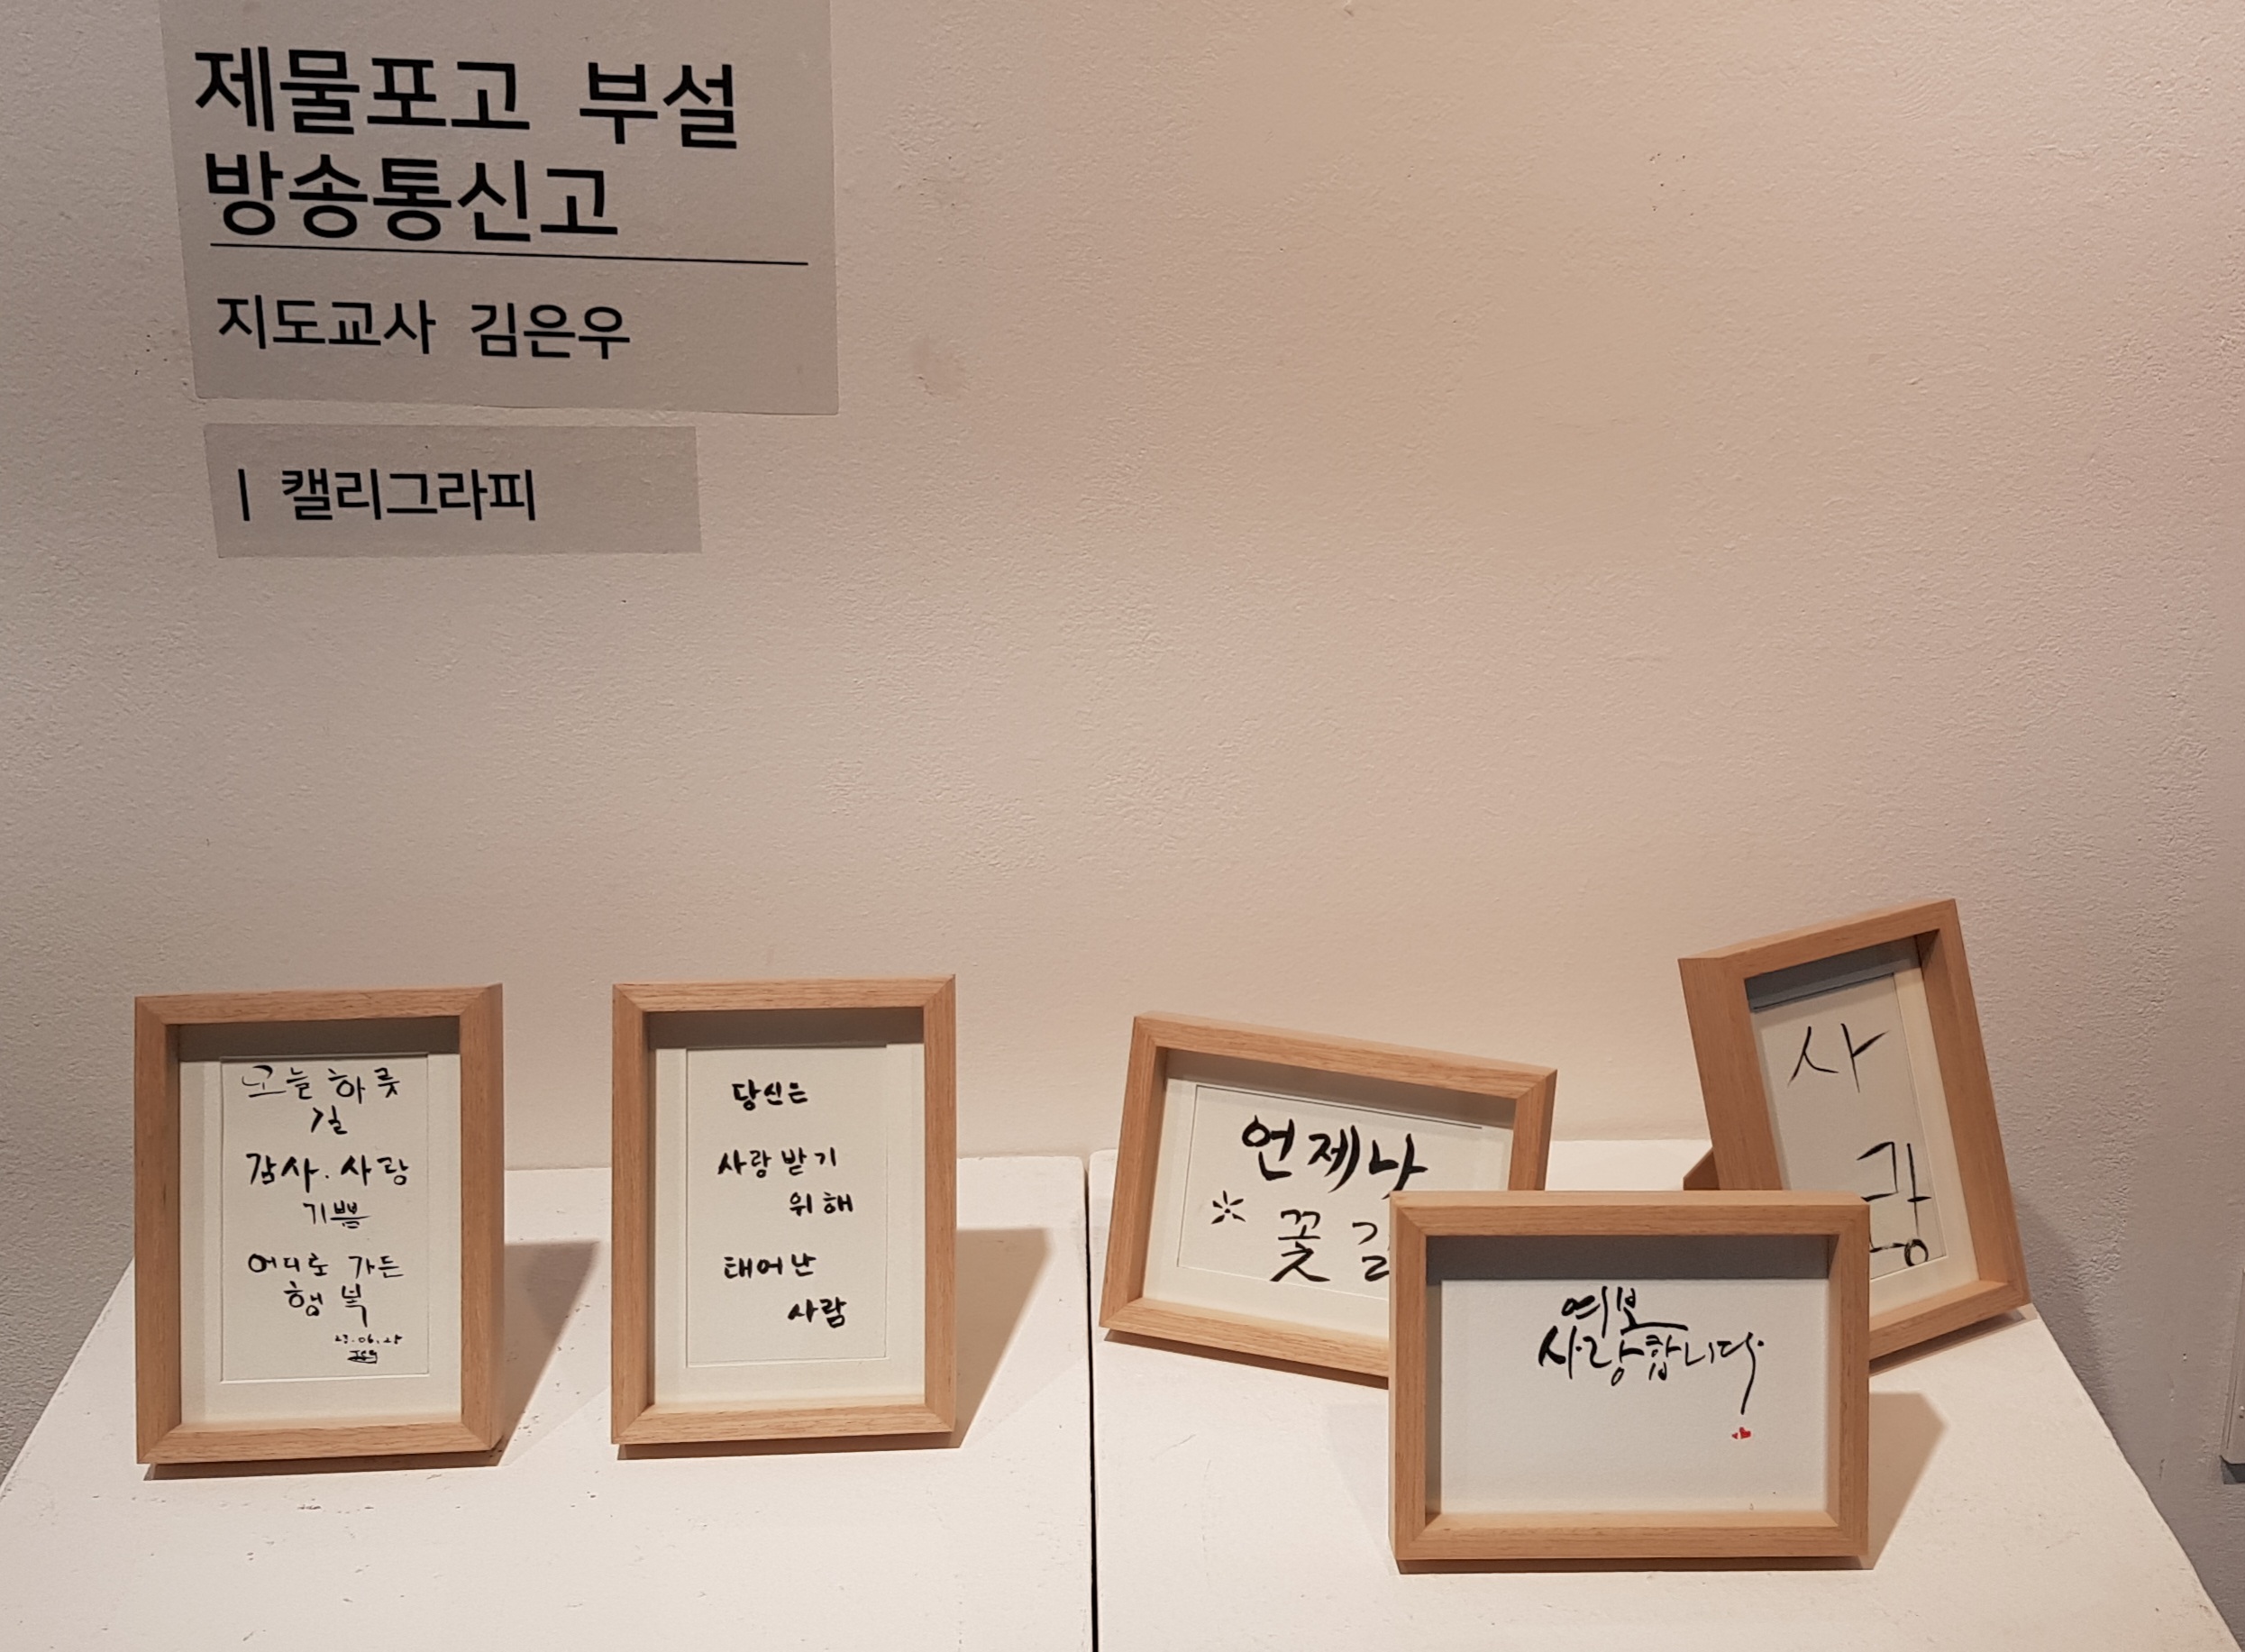 제물포고 부설
방송통신고
지도교사 김은우
| 캘리그라피
오늘 하룻
길
감사. 사랑
기쁨
어디로 가든
행복
23.06.25
당신은
사랑받기
위해
태어난
사람
언제나
꽃길
사
랑
여보
사랑합니다